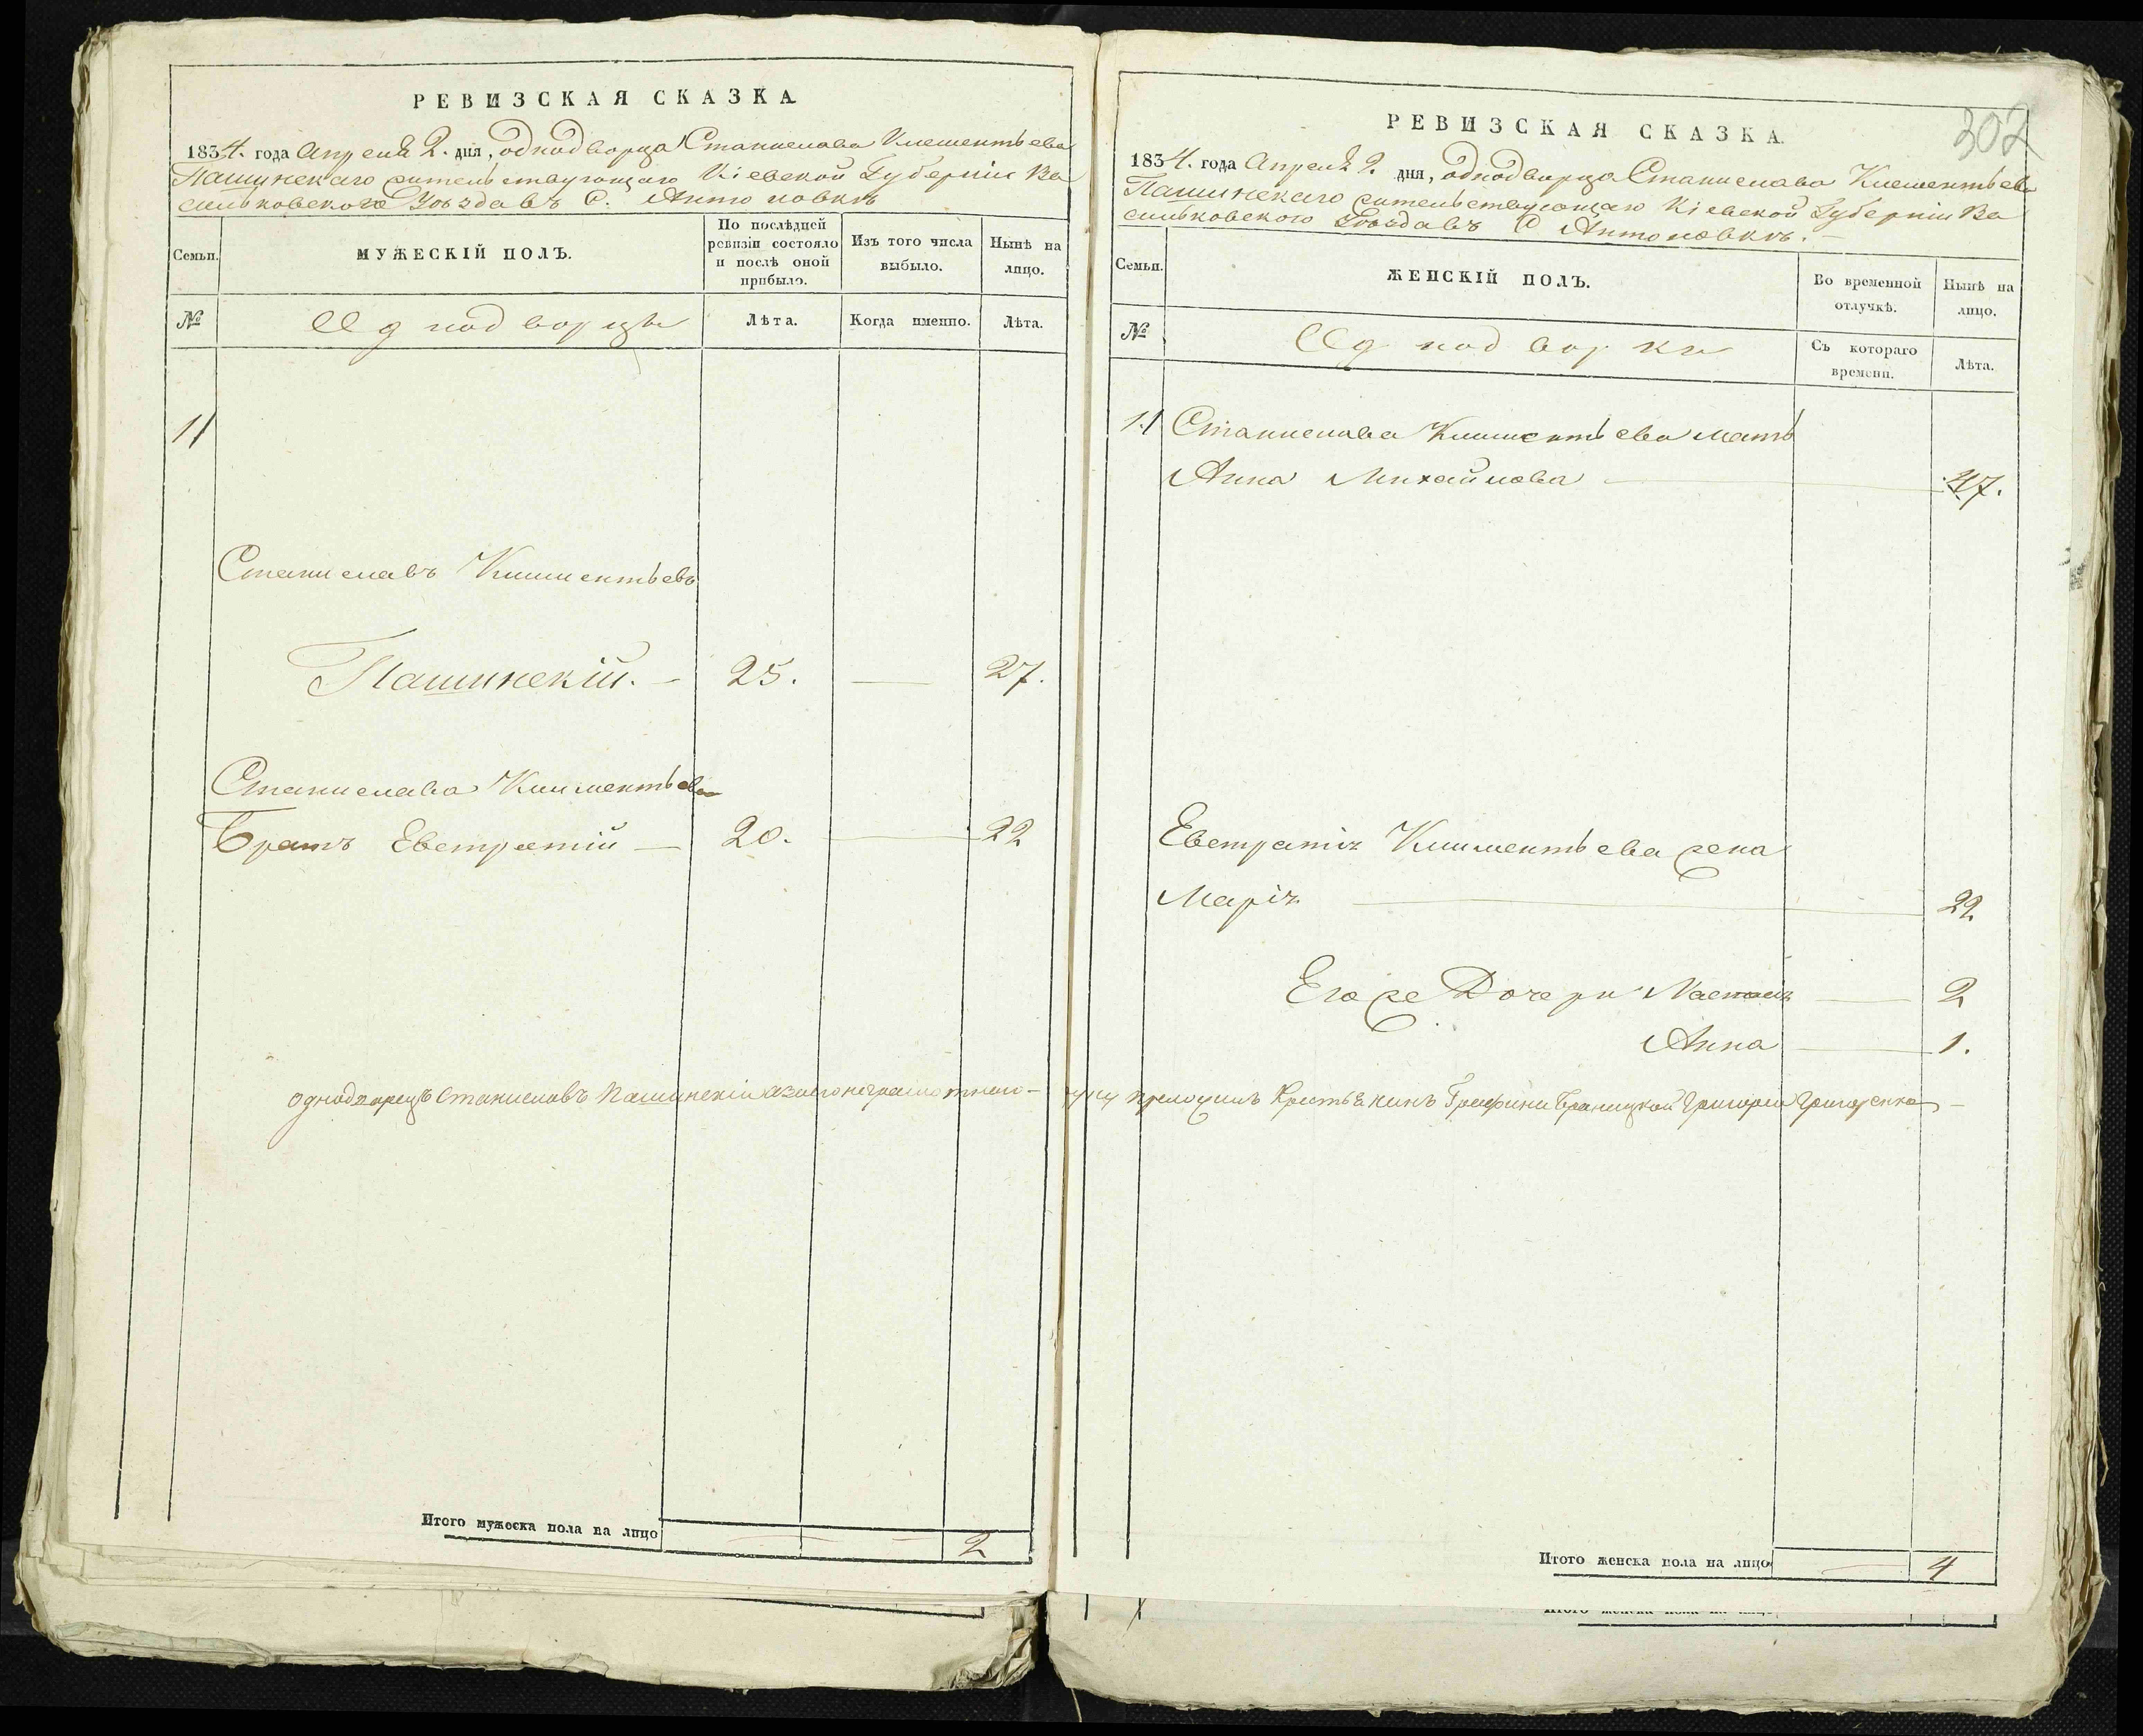 РЕВИЗСКАЯ СКАЗКА
1834. года Апреля 2. дня, однодворца Станислава Клементьева
Пашинскаго жительствующаго Кіевской Губерніи Ва
сильковского Уѣзда въ С. Антоновкѣ
Семьи.
МУЖЕСКІЙ ПОЛЪ.
По послѣдней ревизіи состояло и послѣ оной прибыло.
Изъ того числа выбыло.
Нынѣ на лицо.
№
Однодворцы
Лѣта.
Когда именно.
Лѣта.
1
Станиславъ Климентьевъ
Пашинскій. 25. — 27.
Станислава Климентьева
Братъ Евстратій — 20. — 22
однодворецъ Станиславъ Пашинскій а за его неграмотного
Итого мужеска пола на лицо — — 2
302
РЕВИЗСКАЯ СКАЗКА.
1834. года Апреля 2. дня, однодворца Станислава Клементьева
Пашинскаго жительствующаго Кіевской Губерніи Ва
сильковского Уѣзда въ С Антоновкѣ.
Семьи.
ЖЕНСКІЙ ПОЛЪ.
Во временной отлучкѣ.
Нынѣ на лицо.
№
Однодворки
Съ котораго времени.
Лѣта.
1
Станислава Климентьева мать
Анна Михайлова — 47.
Евстратія Климентьева жена
Марія — 22.
Его же Дочери — 2
Анна — 1.
руку приложилъ Крестьянинъ Графини Браницкой Григорій
Итого женска пола на лицо — 4
Итого женска пола на лицо